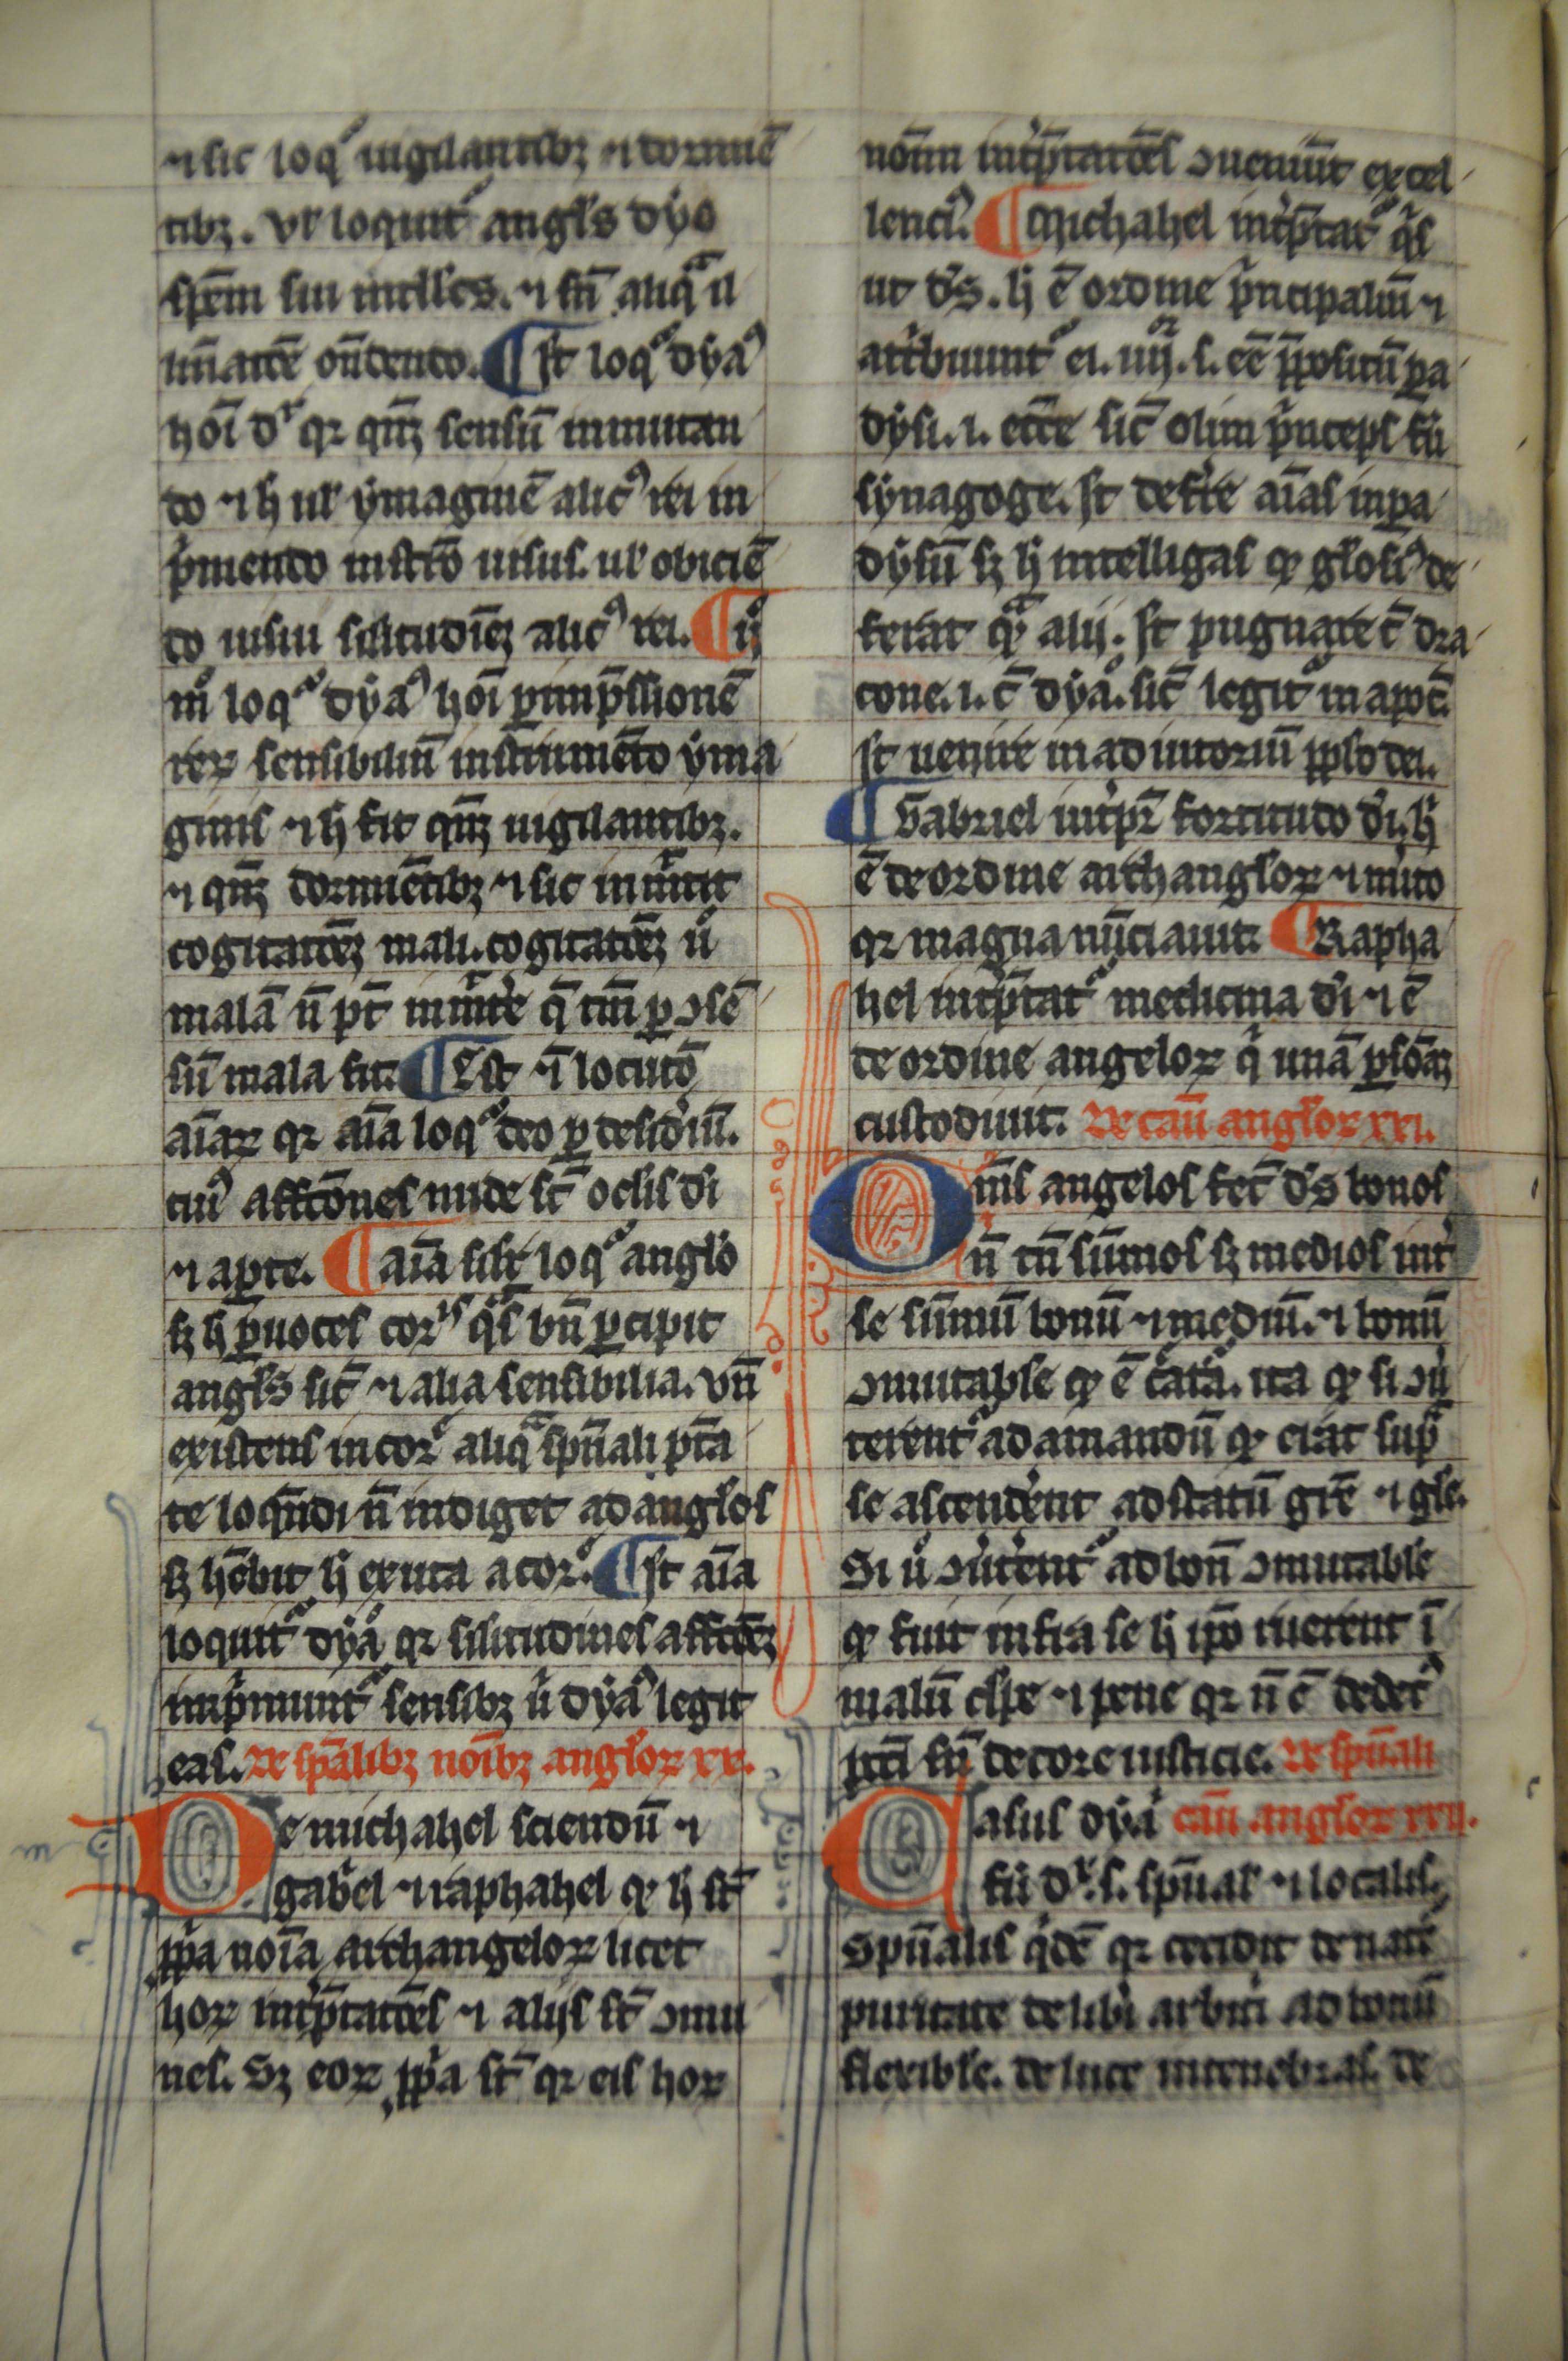 ⁊ sic loqͥ uigilantibꝫ ⁊ dormiē
tibꝫ. ul' loquit᷑ angl's dyo
spēm sui intlłcs. ⁊ sn̄ aliqͣ il
lūīatōe on̄dendo. ¶ st loq᷑ dyaꝰ
hoī dr̄ qꝛ qn̄ꝫ sensū immutan
do ⁊ h ul' ymaginē alicꝰ rei in
pͥmendo instro uisus. ul' obiciē
do uisui silitudīeꝫ alicꝰ rei. ¶ It̃
m̊ loq᷑ dyaꝰ hoī p̱ imp̄ssionē
reꝝ sensibiliū instrumēto yma
ginis ⁊ h fit qn̄ꝫ uigilantibꝫ.
⁊ qn̄ꝫ dormiētibꝫ ⁊ sic inmͥtit
cogitatōeꝫ mali. cogitatōeꝫ ů
malā n̄ pt̄ inmͥte q̄ tm̄ p̱ ɔsē
sū mala fit. ¶ Est ⁊ locutō
aīaꝝ qꝛ aīa loq᷑ deo p̱ desid'iū.
cuiꝰ affcōnes nude st̄ oclis d'i
⁊ ap̱te. ¶ aīa silr̄ loq᷑ anglo
sꝫ h p̱ uoces corꝭ qͣs bn̄ p̱cipit
angl's sic̄ ⁊ alia sensibilia. vn̄
existens in cor᷑ aliqͣ spūali p̱ta
te loqn̄di n̄ indiget ad anglos
sꝫ hēbit h exuta a cor᷑. ¶ st aīa
loquit᷑ dyaͦ qꝛ silitudines affcōeꝫ
impͥmunt᷑ sensibꝫ ů dyaꝰ legit
eas. De sp̄alibꝫ noībꝫ angloꝝ xx.
De michahel sciendū ⁊
gab'el ⁊ raphahel qͦ h st̄
ꝓpͥa noīa archangeloꝝ licet
hoꝝ int'p̄tatōes ⁊ alijs st̄ ɔmu
nes. Sꝫ eoꝝ ꝓpͥa st̄ qꝛ eis hoꝝ
noīm int'p̄tatōes ɔueniūt ex cel
lenciꝰ. ¶ Michahel int'p̄tat᷑ qͥs
ut d's. h ē ordine pͥncipaliū ⁊
att'buunt᷑ ei. iiij. s. eē p̄positū pa
dysi. i. eccē sic̄ olim pͥnceps fuͥ
synagoge. st defͬre aīas in pa
dysū sꝫ h intelligas qͦ gl'osiꝰ de
ferat qͣ alij. st pugnare c̄ dra
cone. i. c̄ dyaͦ. sic̄ legit᷑ in apoc̄.
st uenire in adiutoriū pplo dei.
¶ Gabriel int'pr̄ fortitudo d'i. h
ē de ordine archangloꝝ ⁊ mͥto
qꝛ magna nūciauit. ¶ Rapha
hel int'p̄tat᷑ medicina d'i ⁊ ē
de ordine angeloꝝ qͥ unā p̱sōaꝫ
custodiunt. De cāū angloꝝ xxi.
Omīs angelos fec̄ d's bonos
n̄ tn̄ sūmos sꝫ medios int'
se sūmū bonū ⁊ mediū. ⁊ bonū
ɔmutable qͦ ē c̄ata. ita qͦ si ɔů
terent᷑ ad amandū qͦ erat sup̱
se ascend'ent ad statū gr̄e ⁊ gl'e.
Si ů ɔůterent᷑ ad bon̄ ɔmutable
qͦ fuit infra se h ipō ruerent ī
malū clpe ⁊ pene qꝛ n̄ ē dedecꝰ
pcci sn̄ decore iusticie. De spūali
Casus dyaͥ cāū angloꝝ xxii.
fuͥ dr̄. s. spūal' ⁊ localis.
Spūalis qͥdē qꝛ cecidit de nat᷑
puritate de lib'i arbit'i ad bonū
flexible. de luce in tenebras. de